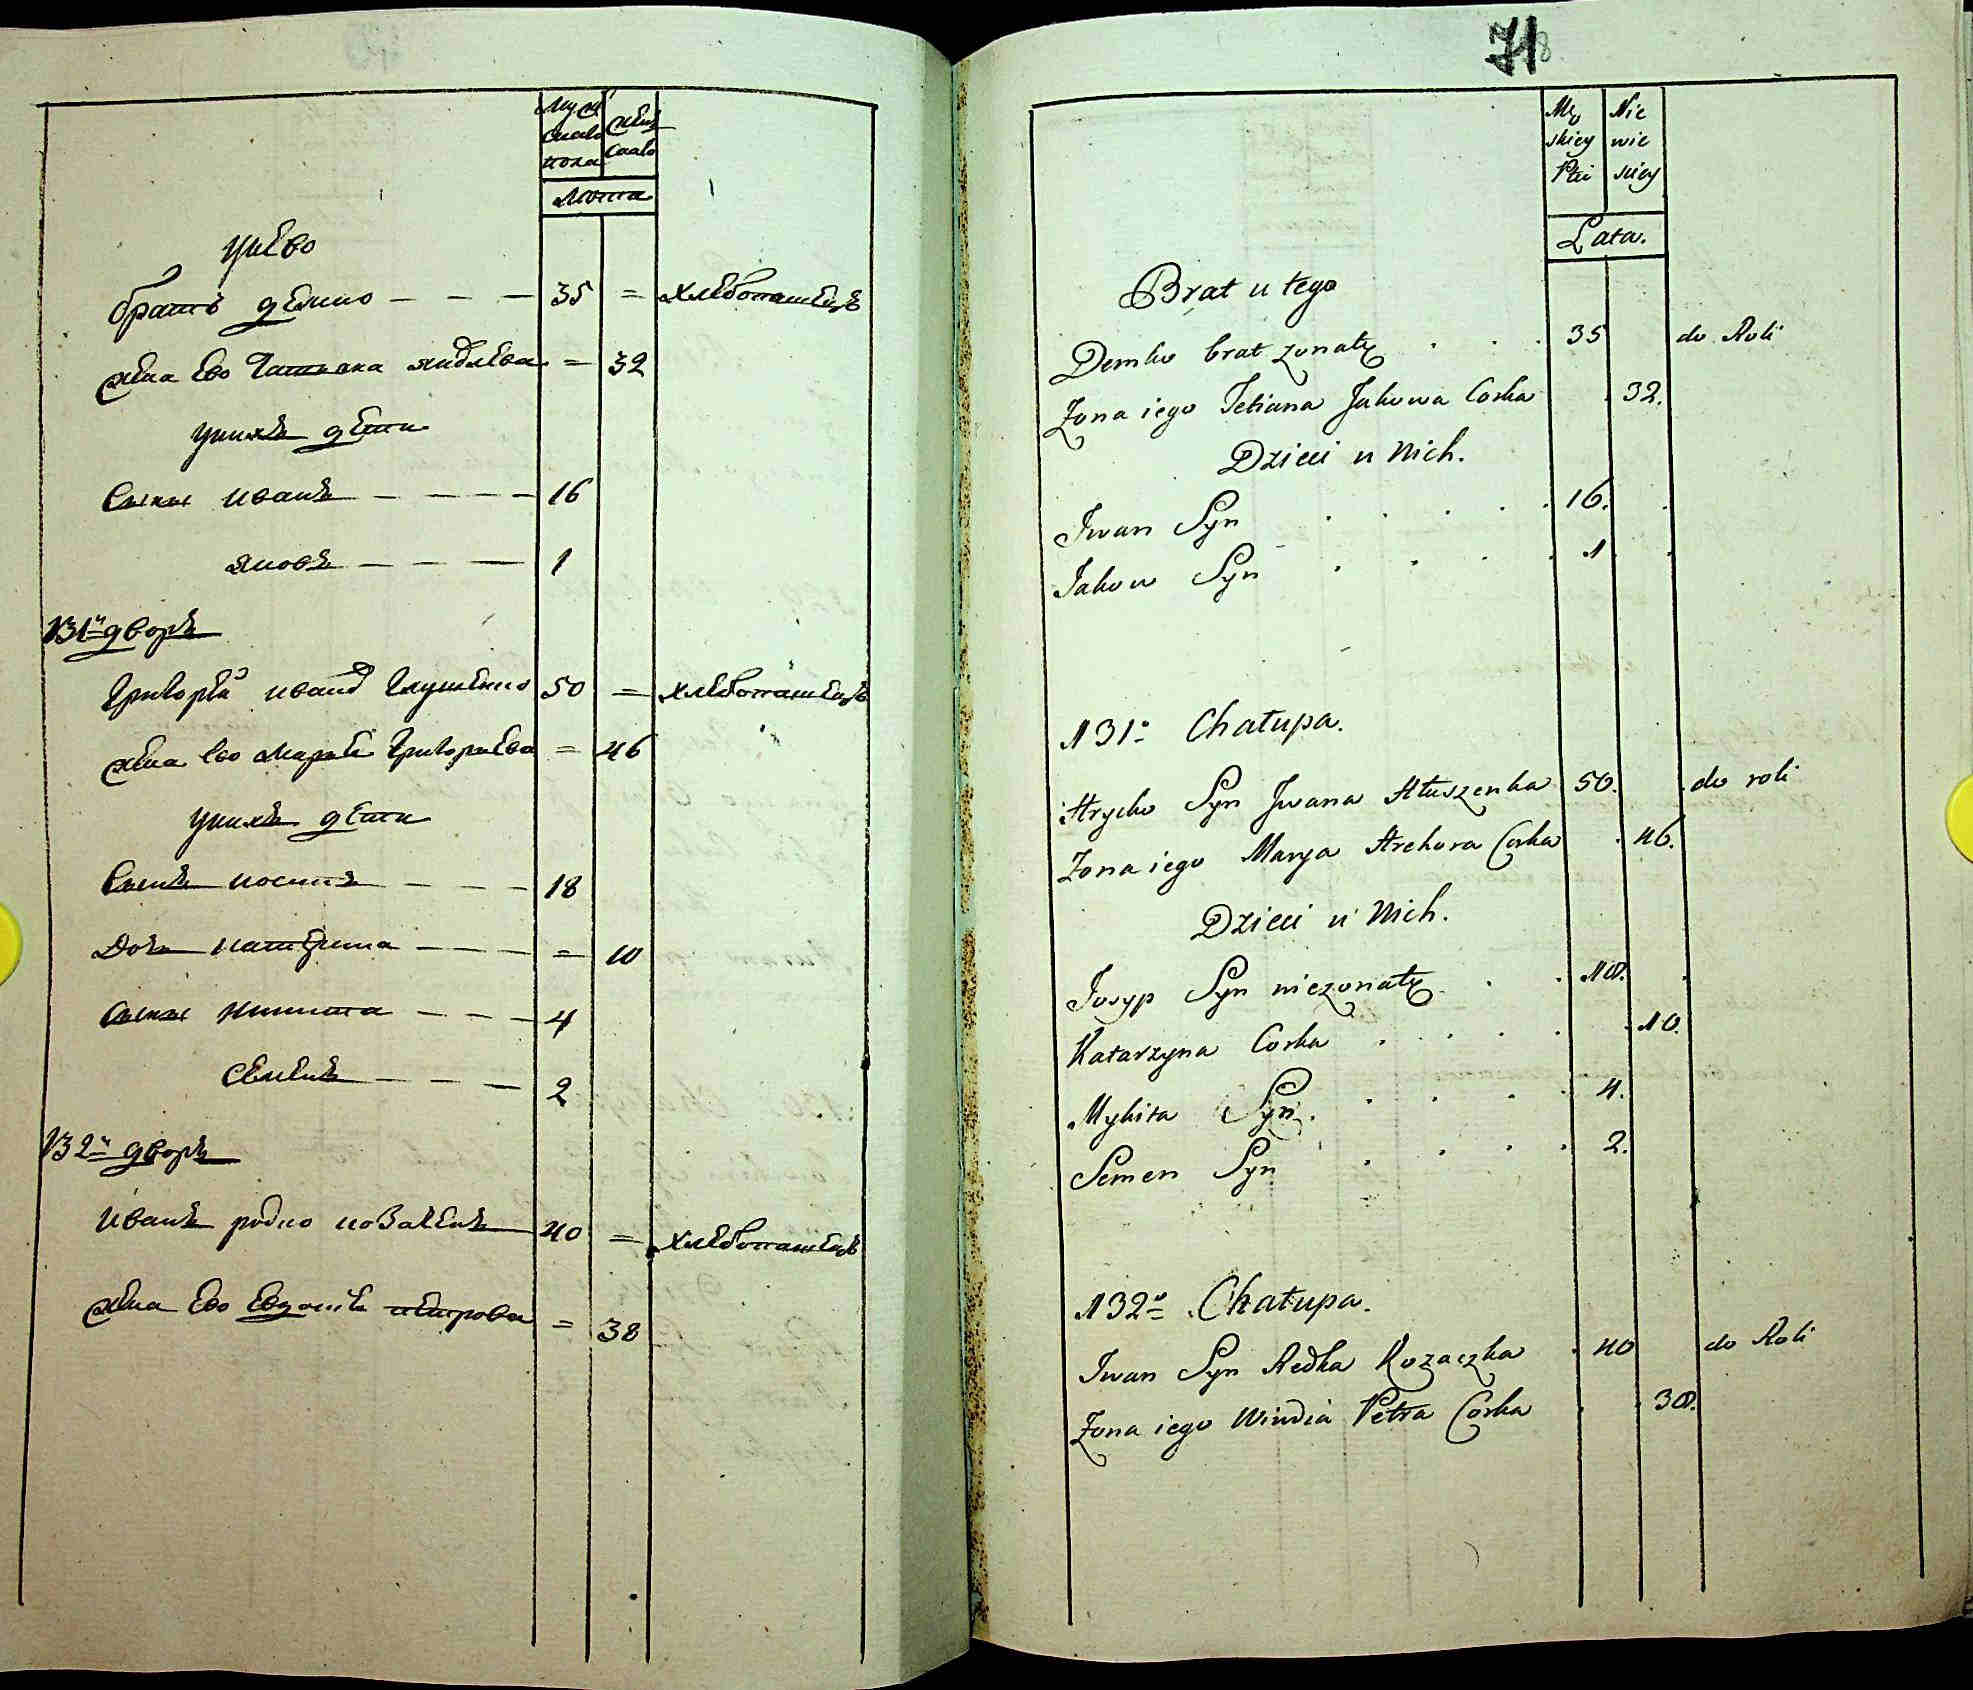 Муж
скаго
пола
женскаго
Лѣта
у него
братъ демко — — — 35 = хлебопашецъ
жена ево Татьяна = 32
у нихъ дети
Сыны иванъ — — — — 16
яковъ — — — 1
131й дворъ
Григорей иванов Глушенко 50 = хлебопашецъ
жена ево Марья Григорьева = 46
у нихъ дети
Сынъ иосипъ — — — 18
Дочь катерина — — — = 10
Сыны Никита — — — 4
Семенъ — — — 2
132й дворъ
Иванъ редко козаченко 40 = хлебопашецъ
жена ево Евдокия петрова = 38
71
Mę
skiey
Płci
Nie
wie
sciey
Lata.
Brat u tego
Demko brat zonaty . . . 35 do Roli
Zona iego Tetiana Jakowa Corka 32.
Dzieci u Nich.
Iwan Syn . . . . . 16.
Jakow Syn . . . . 1
131o Chałupa.
Hrycko Syn Iwana Hłuszenka 50. do roli
Zona iego Marya Hrehora Corka . 46.
Dzieci u Nich.
Josyp Syn niezonaty . . 18.
Katarzyna Corka . . . . 10.
Mykita Syn . . . . . 4.
Semen Syn . . . . 2.
132o Chałupa.
Iwan Syn Redka Kozaczka . 40 do Roli
Zona iego Petra Corka . . 38.